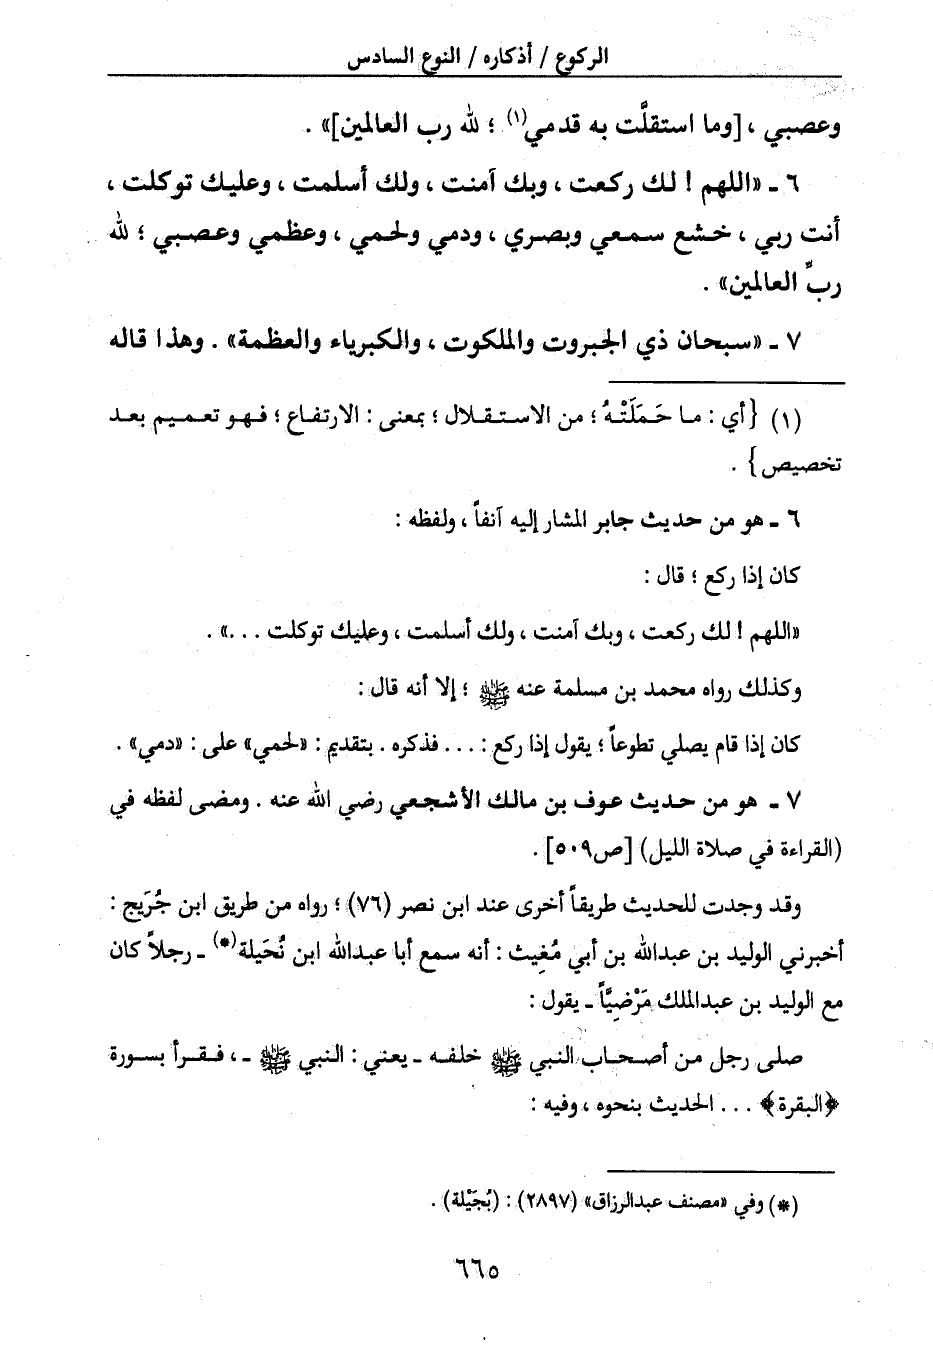 الركوع / أذكاره / النوع السادس
وعصبي ، [وما استقلَّت به قدمي(١) ؛ لله رب العالمين]» .
٦ ـ «اللهم ! لك ركعت ، وبك آمنت ، ولك أسلمت ، وعليك توكلت ،
أنت ربي ، خشع سمعي وبصري ، ودمي ولحمي ، وعظمي وعصبي ؛ لله
ربِّ العالمين» .
٧ ـ «سبحان ذي الجبروت والملكوت ، والكبرياء والعظمة» . وهذا قاله
(١) {أي : ما حَمَلَتْهُ ؛ من الاستقلال ؛ بمعنى : الارتفاع ؛ فهو تعميم بعد
تخصيص} .
٦ ـ هو من حديث جابر المشار إليه آنفاً ، ولفظه :
كان إذا ركع ؛ قال :
«اللهم ! لك ركعت ، وبك آمنت ، ولك أسلمت ، وعليك توكلت ...» .
وكذلك رواه محمد بن مسلمة عنه ﷺ ؛ إلا أنه قال :
كان إذا قام يصلي تطوعاً ؛ يقول إذا ركع : ... فذكره . بتقديم : «لحمي» على : «دمي» .
٧ ـ هو من حديث عوف بن مالك الأشجعي رضي الله عنه . ومضى لفظه في
(القراءة في صلاة الليل) [ص٥٠٩] .
وقد وجدت للحديث طريقاً أخرى عند ابن نصر (٧٦) ؛ رواه من طريق ابن جُرَيج :
أخبرني الوليد بن عبدالله بن أبي مُغِيث : أنه سمع أبا عبدالله ابن نُحَيلة(*) ـ رجلاً كان
مع الوليد بن عبدالملك مَرْضِيَّاً ـ يقول :
صلى رجل من أصحاب النبي ﷺ خلفه ـ يعني : النبي ﷺ ـ ، فقرأ بسورة
﴿البقرة﴾ ... الحديث بنحوه ، وفيه :
(*) وفي «مصنف عبدالرزاق» (٢٨٩٧) : (بُجَيْلة) .
٦٦٥